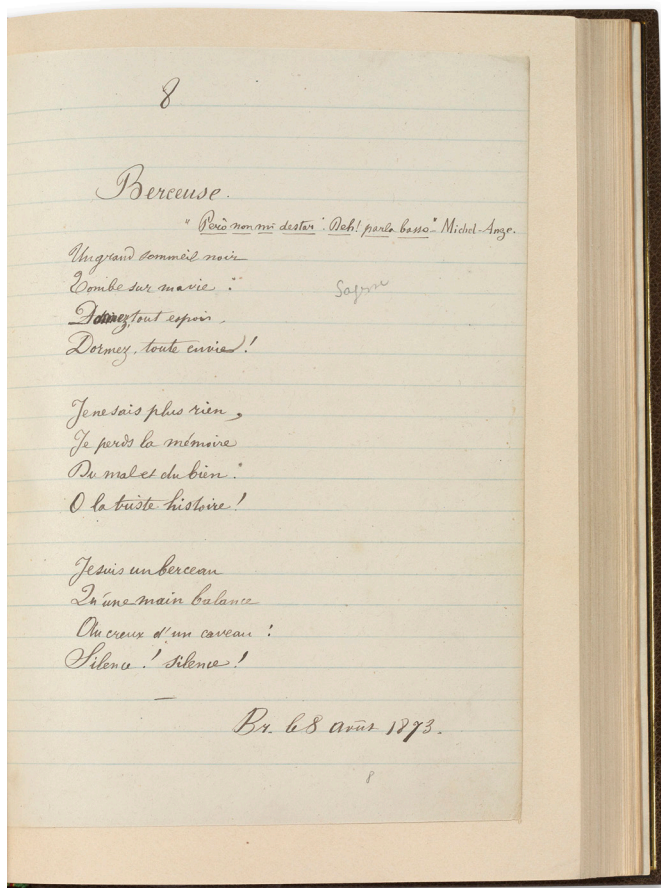 8
Berceuse.
" Però non mi destar : Deh! parla basso " Michel-Ange.
Un grand sommeil noir
Tombe sur ma vie :
Dormez, tout espoir,
Dormez, toute envie !
Sagesse
Je ne sais plus rien,
Je perds la mémoire
Du mal et du bien :
O la triste histoire !
Je suis un berceau
Qu'une main balance
Au creux d'un caveau :
Silence ! silence !
Br. le 8 août 1873.
8